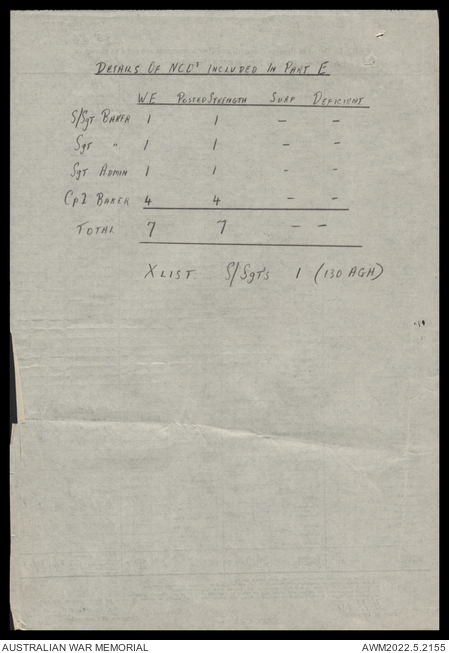 DETAILS OF NCO'S INCLUDED IN PART E
WE POSTED STRENGTH SURP DEFICIENT
S/SGT BAKER 1 1 – –
SGT " 1 1 – –
SGT ADMIN 1 1 - -
CPL BAKER 4 4 – -
TOTAL 7 7 – –
X LIST. S/SGTS 1 (130 AGH)
AUSTRALIAN WAR MEMORIAL AWM2022.5.2155